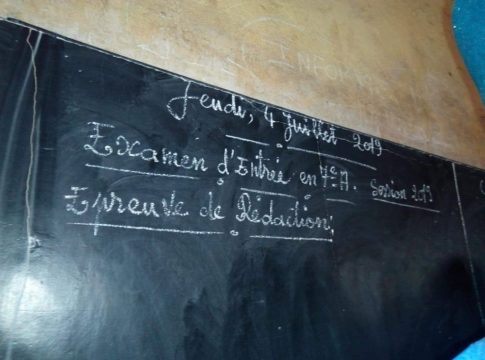 INFORM
Jeudi, 4 Juillet 2019
Examen d'Entrée en 7e A. Session 2019
Epreuve de Rédaction.